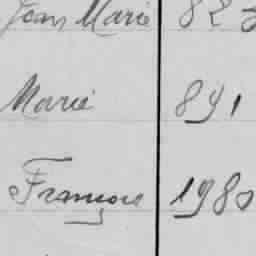 Jean Marie 823
Marie 891
François 1980